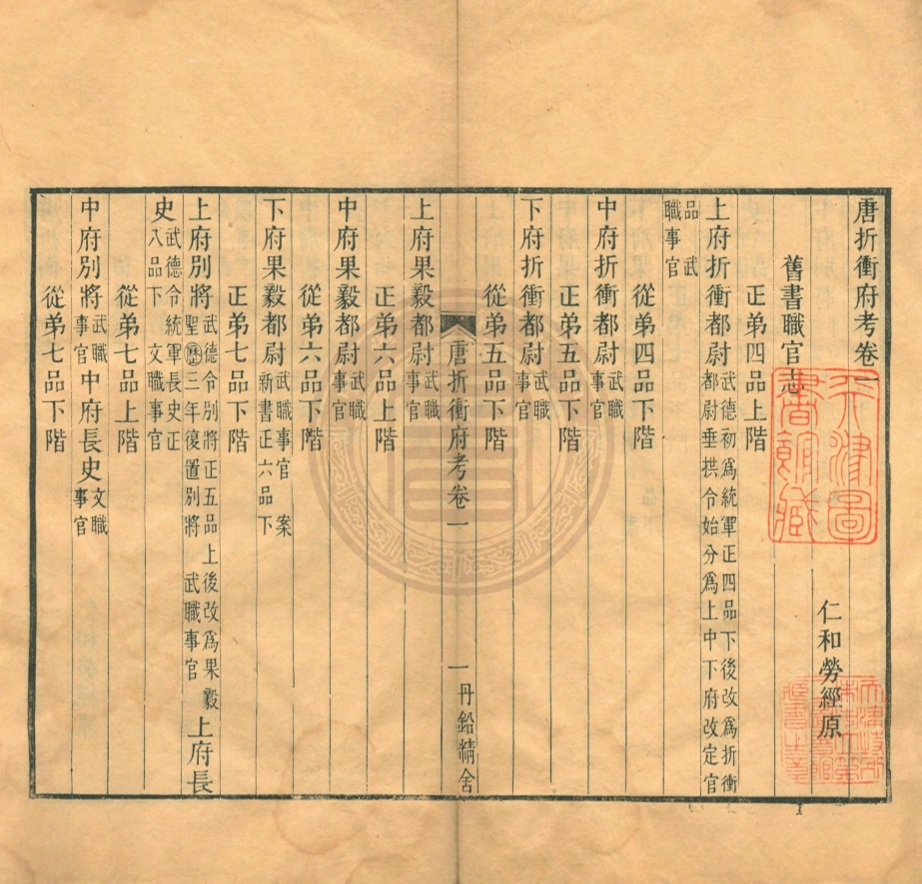 唐折衝府考卷一
仁和勞經原
舊書職官志
正弟四品上階
上府折衝都尉武德初爲統軍正四品下後改爲折衝都尉垂拱令始分爲上中下府改定官
品武職事官
從弟四品下階
中府折衝都尉武職事官
正弟五品下階
下府折衝都尉武職事官
從弟五品下階
唐折衝府考卷一
一
丹鉛精舍
上府果毅都尉武職事官
正弟六品上階
中府果毅都尉武職事官
從弟六品下階
下府果毅都尉武職事官 案新書正六品下
正弟七品下階
上府別將武德令別將正五品上後改爲果毅聖㦄三年復置別將 武職事官上府長
史武德令統軍長史正八品下 文職事官
從弟七品上階
中府別將武職事官中府長史文職事官
從弟七品下階
天津圖書館藏